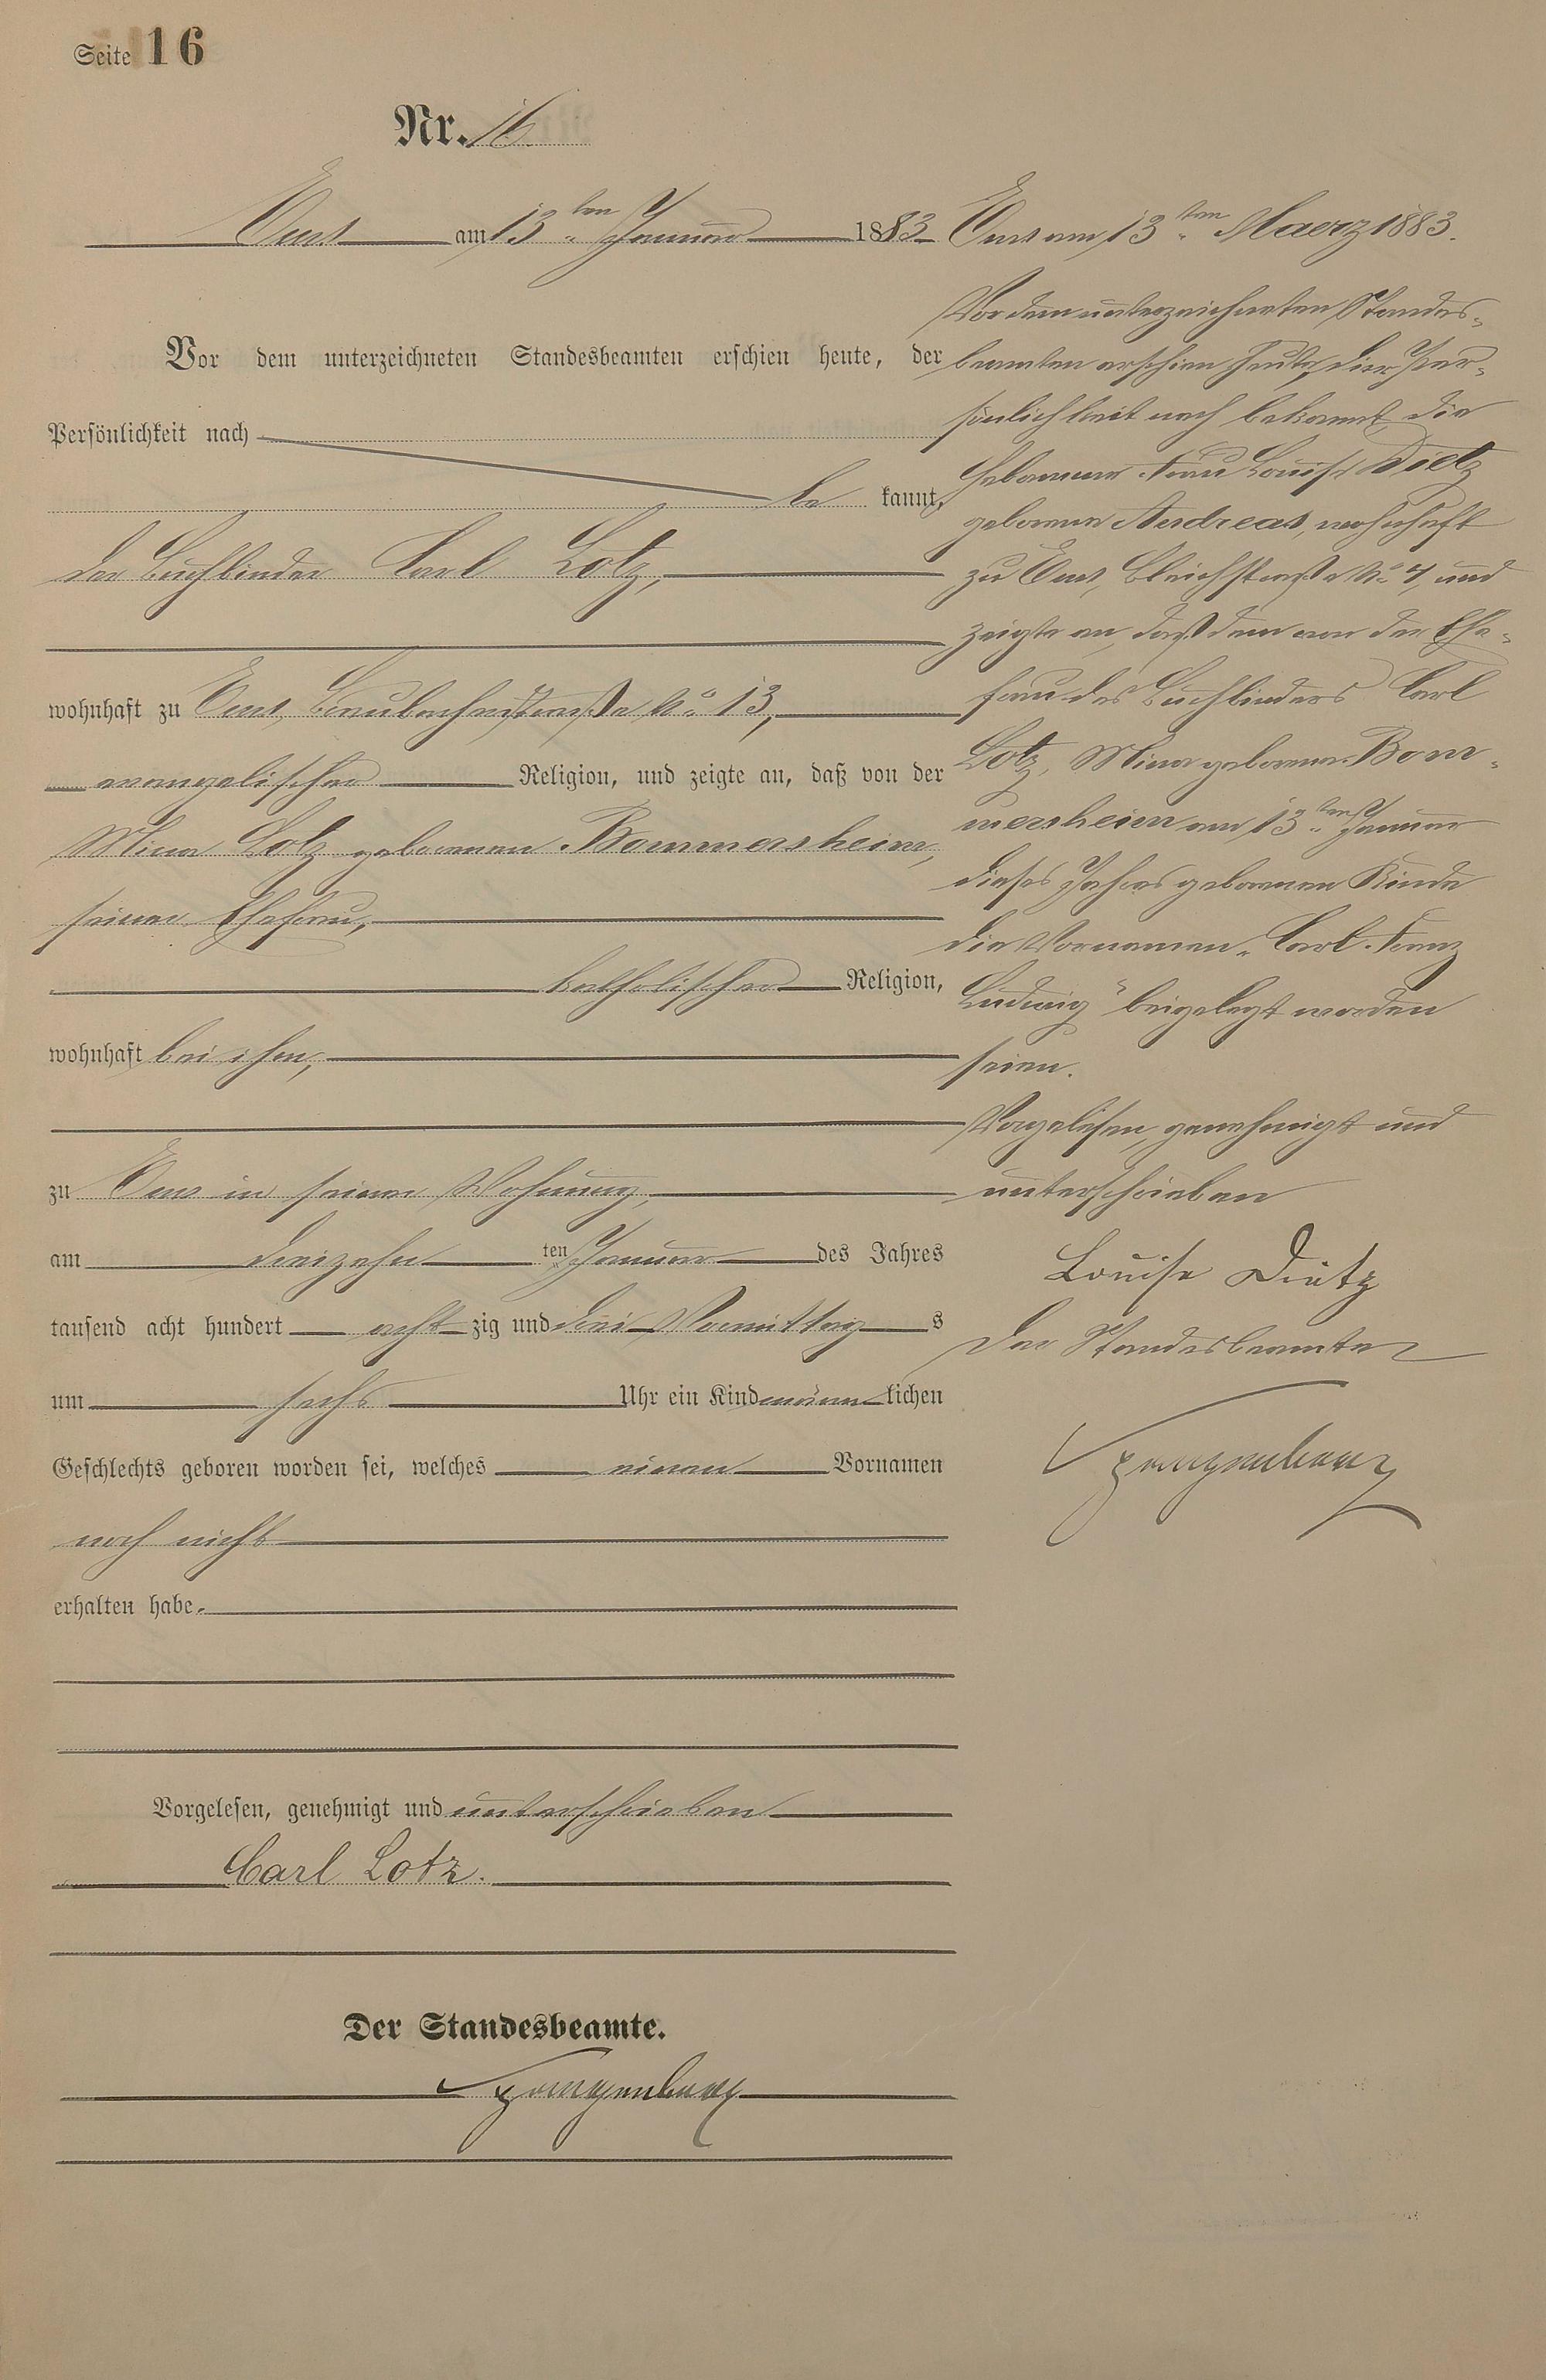 Seite 16
Nr. 16.
Ems am 13ten Januar 1883
Vor dem unterzeichneten Standesbeamten erschien heute, der
Persönlichkeit nach
be kannt,
der Buchbinder Carl Lotz,
wohnhaft zu Ems, Braubacherstraße No 13,
evangelischer Religion, und zeigte an, daß von der
Mina Lotz geborenen Bommersheim,
seiner Ehefrau,
katholischer Religion,
wohnhaft bei ihm,
zu Ems in seiner Wohnung,
am dreizehn ten Januar des Jahres
tausend acht hundert acht zig und drei Vormittag s
um sechs Uhr ein Kind männ lichen
Geschlechts geboren worden sei, welches einen Vornamen
noch nicht
erhalten habe.
Vorgelesen, genehmigt und unterschrieben
Carl Lotz.
Der Standesbeamte.
Ems am 13ten Maerz 1883.
Vor dem unterzeichneten Standes-
beamten erschien heute, der Per-
sönlichkeit nach bekannt, die
Hebamme Frau Louise Dietz
geborene Andreas, wohnhaft
zu Ems, Bleichstraße No 4, und
zeigte an, daß dem von der Ehe-
frau des Buchbinders Carl
Lotz, Mina geborene Bom-
mersheim am 13ten Januar
dieses Jahres geborenen Kinde
die Vornamen „Carl Franz
Ludwig" beigelegt worden
seien.
Vorgelesen, genehmigt und
unterschrieben
Louise Dietz
Der Standesbeamte